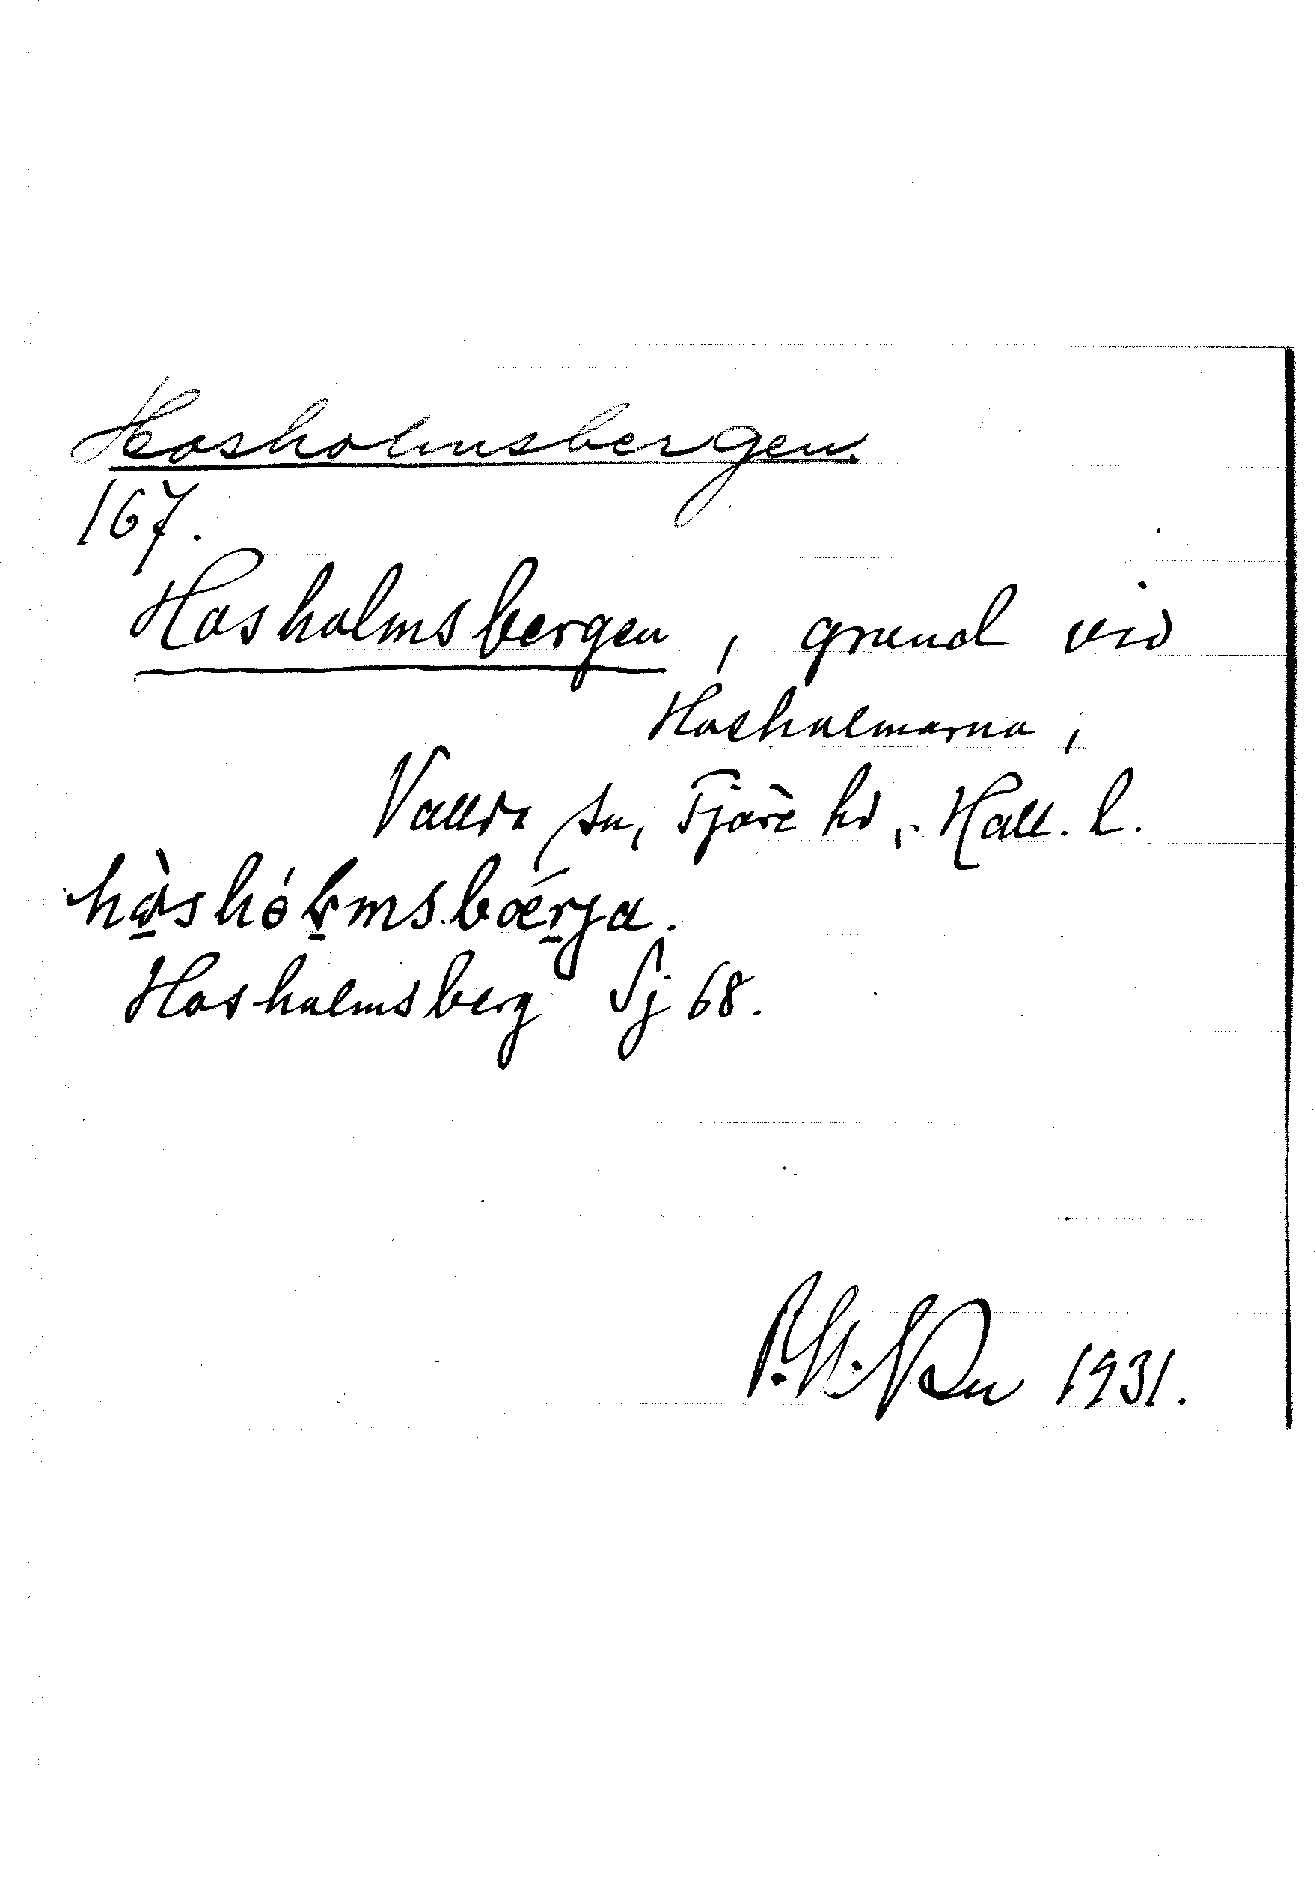 Hasholmsbergen.
167.
Hasholmsbergen, grund vid
Hasholmarna,
Vallda sn, Fjäre hd, Hall. l.
hàshólmsbœ́rja.
Hasholmsberg Sj 68.
1931.